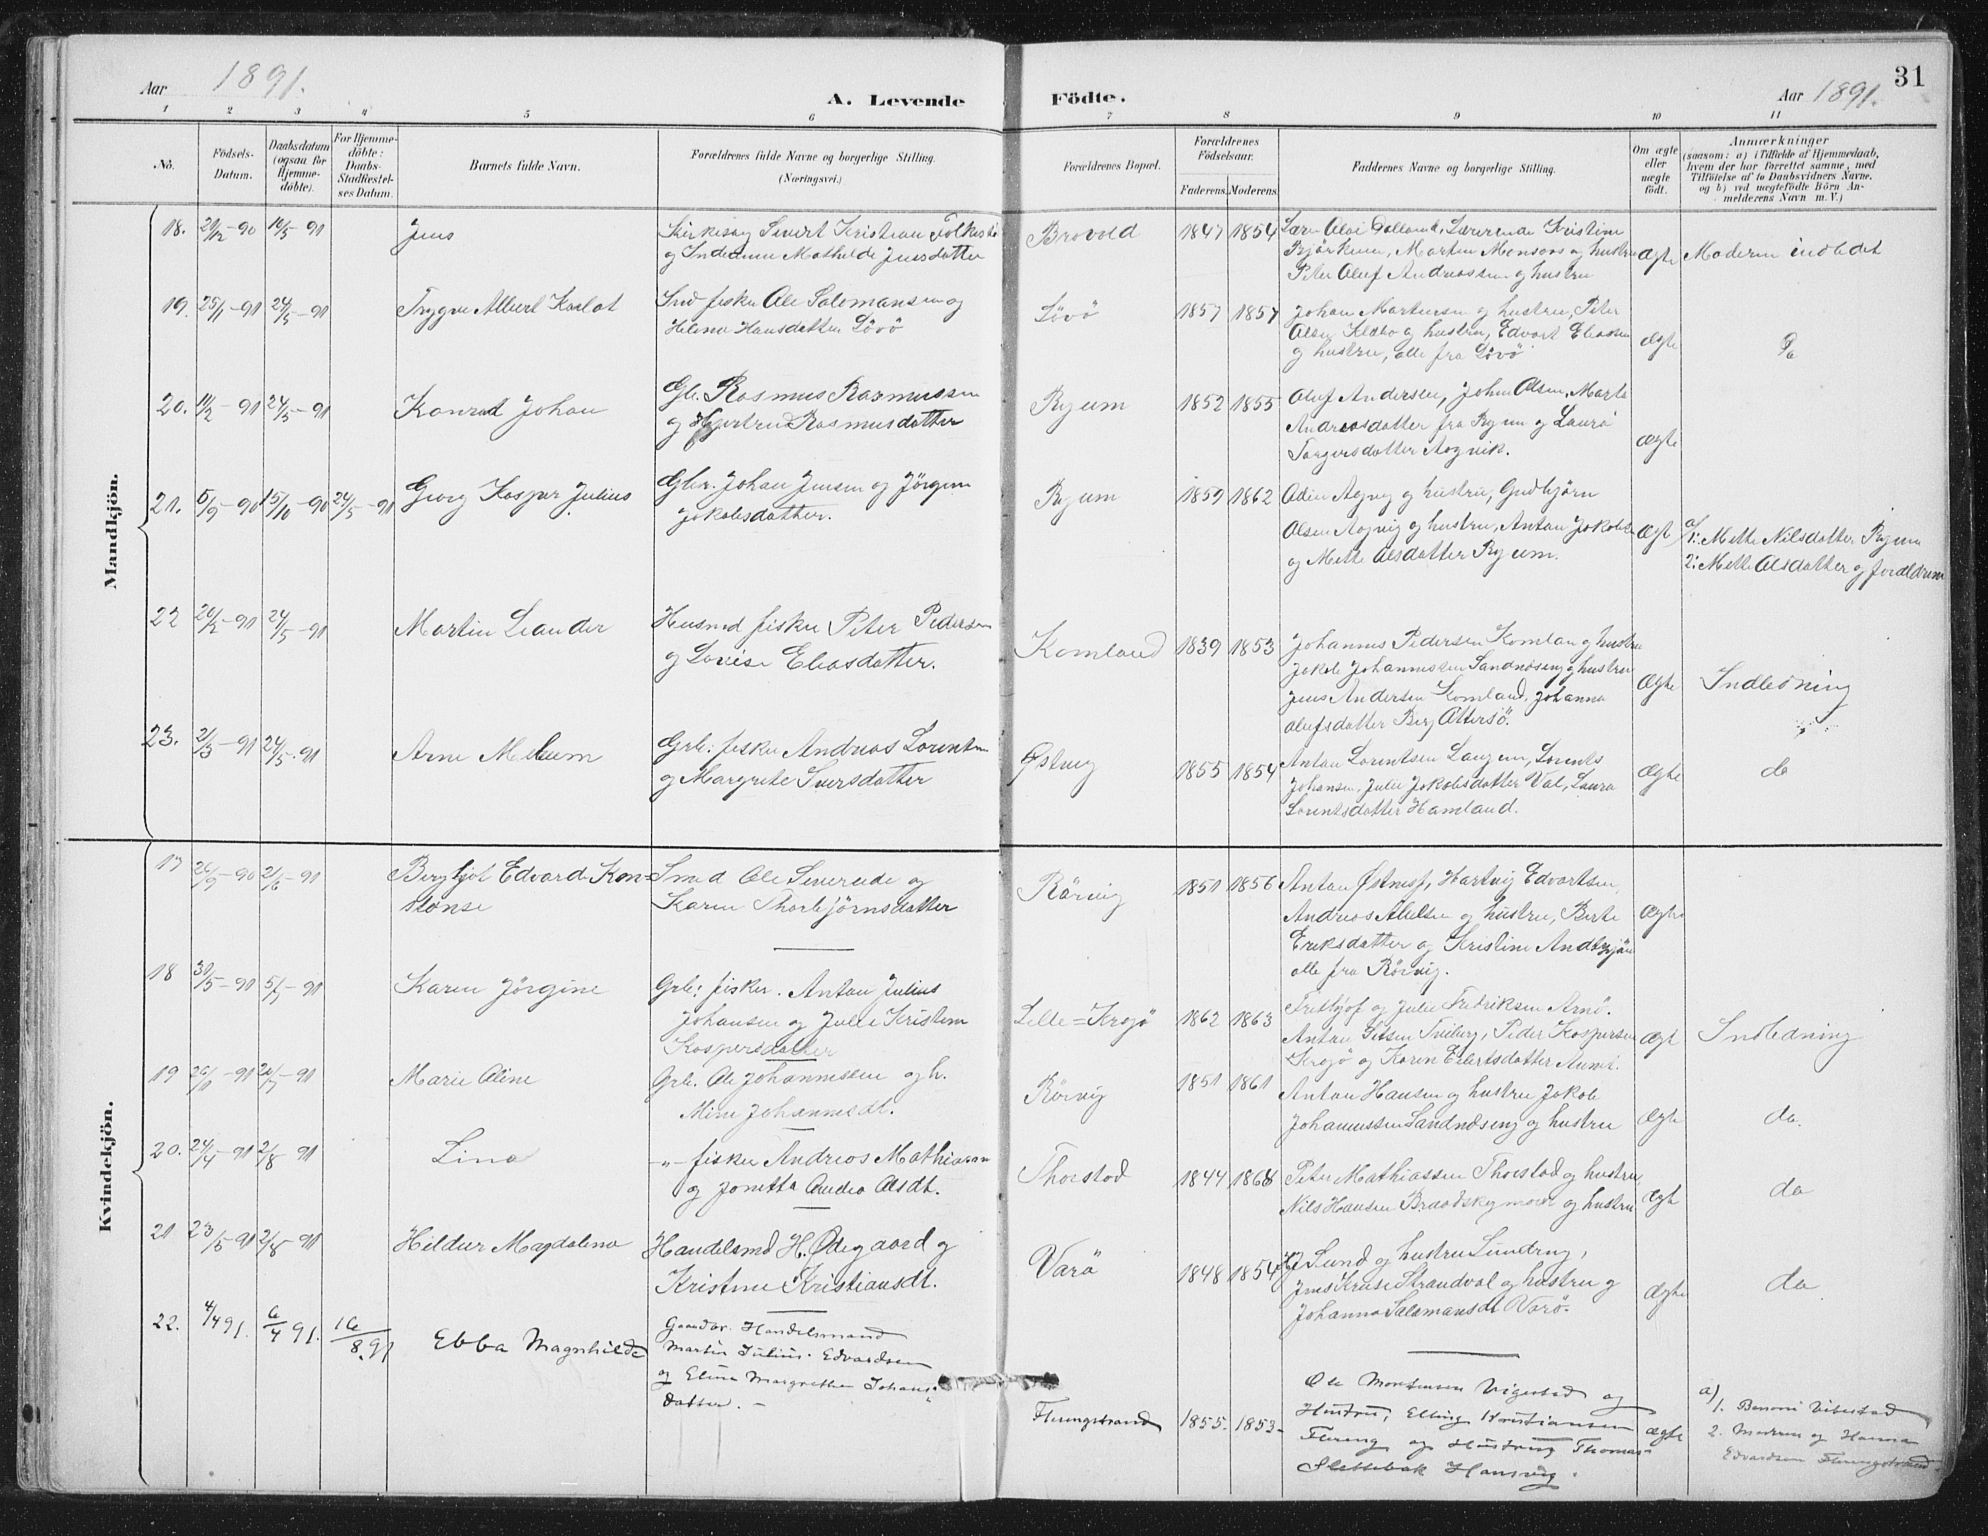 31
Aar 1891.
A. Levende Födte.
Aar 1891.
1 2 3 4 5 6 7 8 9 10 11
No.
Födsels-Datum.
Daabsdatum (ogsaa for Hjemme-döbte).
For Hjemme-döbte: Daabs-Stadfæstel-ses Datum.
Barnets fulde Navn.
Forældrenes fulde Navne og borgerlige Stilling.
(Næringsvei.)
Forældrenes Bopæl.
Forældrenes Födselsaar.
Faderens. Moderens.
Faddernes Navne og borgerlige Stilling.
Om ægte eller uægte födt.
Anmærkninger
(saasom: a) i Tilfælde af Hjemmedaab,
hvem der har forrettet samme, med
Tilföielse af to Daabsvidners Navne.
og b) ved uægtefödte Börn An-
melderens Navn m. V.)
Mandkjön.
18. 16/5-91 Jens
Kirkesang Sivert Kristian
og Indianna Mathilde Jensdatter
Brovold 1847 1854
Kristine
Bjørkum, Martin Monsen og hustru
Peter Oluf Andreassen og hustru
ægte
Moderen indledet
19. 25/1-91 24/5-91 Trygve Albert Karlot
Ind. fisker Ole Salomonsen og
Helene Hansdatter Løvø
Løvø 1857 1857
Johan Martinsen og hustru, Peter
Olsen og hustru, Edvart Eliasen
og hustru, alle fra Løvø
ægte
Do
20. 11/2-91 24/5-91 Konrad Johan
Gbr. Rasmus Rasmussen
og Rasmusdatter
Ryum 1852 1855
Oluf Andersen, Johan Olsen, Marte
Andreasdatter fra Ryum og Laura
Torgersdatter Aagvik.
ægte
21. 5/9-90 15/10-90 24/5-91 Georg Kasper Julius
Gbr. Johan Jensen og Jørgine
Jakobsdatter.
Ryum 1859 1862
Odin Aagvig og hustru, Gudbjørn
Olsen Aagvig og hustru, Anton Jakobsen
og Mette Olsdatter Ryum.
ægte
a/1: Mette Nilsdatter Ryum
2: Mette Olsdatter og forældrene
22 20/2-91 24/5-91 Martin Leander
Husmd fisker Peter Pedersen
og Lovise Eliasdatter.
Komland 1839 1853
Johannes Pedersen Komlan og hustru
Jakob Johannessen Sandnæseng og hustru
Jens Andersen Komland, Johanna
Olufsdatter Berg
ægte
Indledning
23. 2/3-91 24/5-91 Arne
Grb: fisker Andreas Lorentsen
og Margrete Siversdatter
Østvig 1855 1854
Anton Lorentsen Langsun, Lorents
Johansen, Julie Jakobsdatter Val, Laura
Lorentsdatter Hamland.
ægte
do
Kvindekjön.
17 26/9-90 21/6-91 Bergljot Edvarda Kon-
stanse
Smed Ole Severeide og
Karen Thorbjørnsdatter
Rørvig 1851 1856
Anton Østnesf, Hartvig Edvartsen,
Andreas Abelsen og hustru, Berte
Eriksdatter og Kristine
alle fra Rørvig.
ægte
18 30/5-91 5/7-91 Karen Jørgine
Grb: fisker. Anton Julius
Johansen og Julie Kristine
Kaspersdatter
Lille-Krojø 1862 1863
Frithjof og Julie Fredriksen Arnø.
Anton Tviberg, Peder Kaspersen
Krojø og Karen Eilertsdatter
ægte
Indledning
19 20/1-91 26/7-91 Marie Oline
Grb. Ole Johannessen og h.
Mine Johannesdt.
Rørvig 1851 1861
Anton Hansen og hustru Jakob
Johannessen Sandnæseng og hustru
ægte
do.
20. 24/4-91 2/8 91 Lina
-"- fisker Andreas Mathiasen
og Jonetta Andrea Olsdt.
Thorstad 1844 1868
Peter Mathiassen Thorstad og hustru
Nils Hansen og hustru
ægte
do
21 23/5-91 2/8 91 Hildur Magdalena
Handelsmd H. Ødegaard og
Kristine Kristiansdt.
Varø 1848 1854
Lund og hustru Lundring,
Jens Kruse Strandval og hustru og
Johanna Salamonsdt Varø.
ægte
do
22. 4/4 91. 6/4 91. 16/8 91 Ebba Magnhilde
Gaardbr. Handelsmand
Martin Julius Edvardsen
og Eline Margrethe Johans-
datter. -
Flerengstrand 1855. 1853.
Ole Mortensen Vigestad og
Hustru, Elling Kristiansen
Flereng og Hustru, Thomas
Slettebak Hansvig.
ægte
a)
1. Benoni Vibestad
2. Moderen og Hanna
Edvardsen Flerengstrand